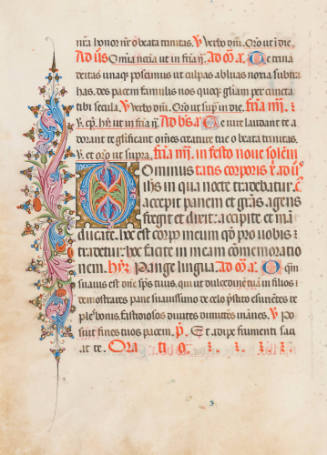 nr̃a honor nr̃ o beata trinitas. V Verbo dñi. Or̃o ut ĩ die.
Ad ũs Omĩa nor̃ia ut in fr̃ia ꝗ̃. Ad cõ. a. Te trina
deitas unaqꝫ poscimus ut culpas abluas noxia subtra
has. des pacem famulis nos quoqꝫ gl̃iam per cuncta
tibi secula. V Verbo dñi. Or̃o ut sup̃ in die. fr̃ia iii. ꝫ
fr̃ia ꝗ̃. Ad bñ. a. Te iure laudant te a
dorant te glificant oms̃ creature tue o beata trinitas.
V. et or̃o ut supra. fr̃ia iiij. in festo noue solẽni
tatis corporis x̃. ad ũs
Dominus
ih̃s in qua nocte tradebatur. c̃
accepit panem et gr̃as. agens
fregit et dixit. accipite et mã
ducate. hoc est corpus meum qd̃ pro uobis
tradetur. hoc facite in meam cõmemoratio
nem. hỹ. Pange lingua. Ad cõ. a. O qm̃
suauis est dñe sp̃s tuus. qui ut dulcedinẽ tuã in filios
demostrares pane suauissimo de celo p̃stito esurientes re
ples bonis. fastidiosos diuites dimittẽs inanes. V Po
suit fines tuos pacem. ꝶ. Et adipe frumenti sau
at te. Ora